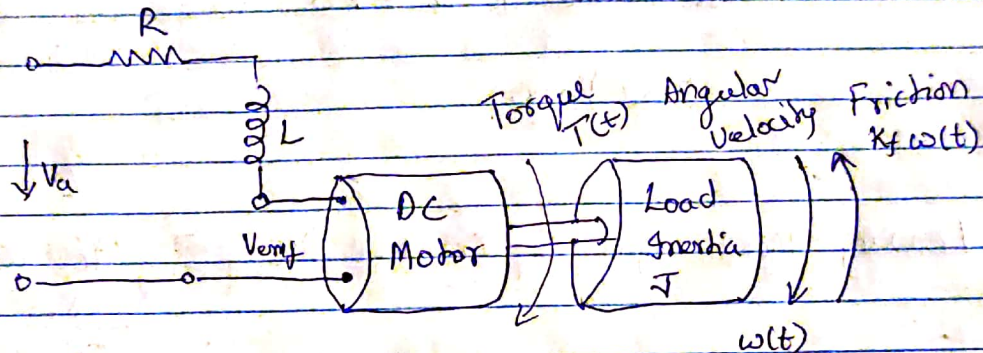 R
L
Va
Vemf
DC
Motor
Torque
T(t)
Angular
Velocity
Friction
Kf ω(t)
Load
Inertia
J
ω(t)